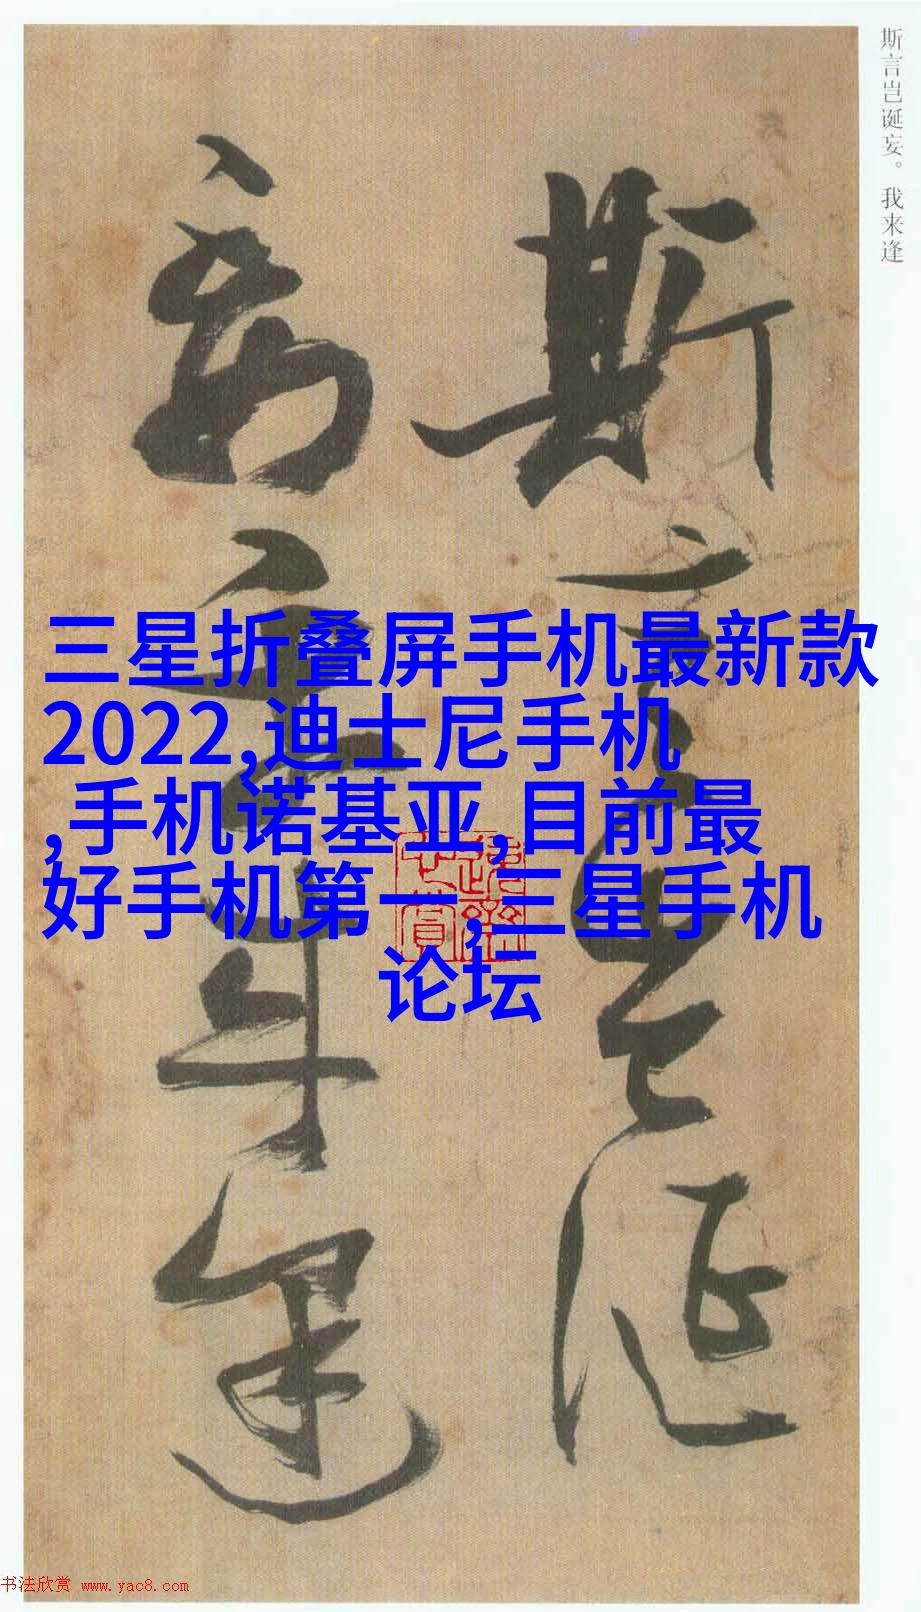 斯言岂诞妄。我来逢
斯言岂诞
妄我来逢
三星折叠屏手机最新款
2022,迪士尼手机
,手机诺基亚,目前最
好手机第一,三星手机
论坛
书法欣赏 www.yac8.com